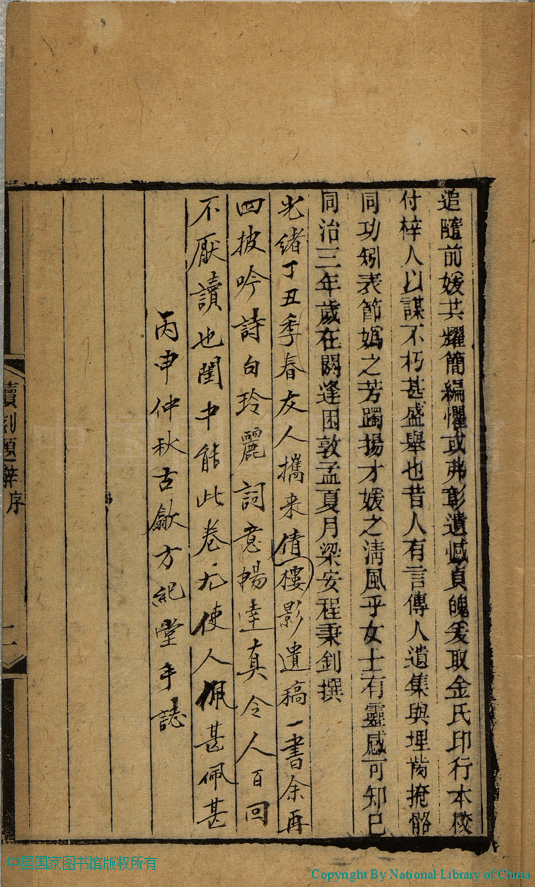 追隨前媛共耀簡編懼或弗彰遺憾貞魄爰取金氏印行本校
付梓人以謀不朽甚盛舉也昔人有言傳人遺集與埋胔掩骼
同功矧表節媯之芳躅揚才媛之清風乎女士有靈感可知已
同治三年歲在閼逢困敦孟夏月梁安程秉釗撰
光緒丁丑季春友人攜来倩樓影遺稿一書余再
四披吟詩句玲麗詞意暢達真令人百回
不厭讀也閨中能此卷尤使人佩甚佩甚
丙申仲秋古歙方紀堂手誌
續刻題辭序
二
中国国家图书馆版权所有
Copyright By National Library of China